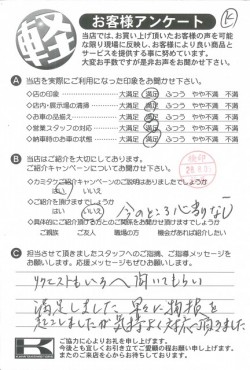 軽
お客様アンケート
当店では、お買い上げ頂いたお客様の声を可能
な限り現場に反映し、お客様により良い商品と
サービスを提供する事に努めています。
大変お手数ですが是非お声をお聞かせ下さい。
A 当店を実際にご利用になった印象をお聞かせ下さい。
◇店の印象 大満足 満足 ふつう やや不満 不満
◇店内・展示場の清掃 大満足 満足 ふつう やや不満 不満
◇お車の品揃え 大満足 満足 ふつう やや不満 不満
◇営業スタッフの対応 大満足 満足 ふつう やや不満 不満
◇納車時のお車の状態 大満足 満足 ふつう やや不満 不満
B 当店はご紹介を大切にしてあります。
ご紹介キャンペーンについてお聞かせ下さい。
◇カミタケご紹介キャンペーンのご説明はありましたでしょうか
はい いいえ
◇ご紹介を頂けますでしょうか
はい いいえ 今のところ心当りなし
◇具体的にご紹介頂ける方とのご関係をお聞かせ頂けますでしょうか
ご親族 ご友人 職場の方 機会があれば紹介したい
C 担当させて頂きましたスタッフへのご指摘、ご指導メッセージを
お願いします。応援メッセージもぜひお願いします。
リクエストもいろいろ聞いてもらい
満足しました
気持よく対応頂きました
K
ご協力に心よりお礼を申し上げます。
今後とも宜しくお引き立てご愛顧の程お願い申し上げます。
またのご来店を心からお待ちしております。